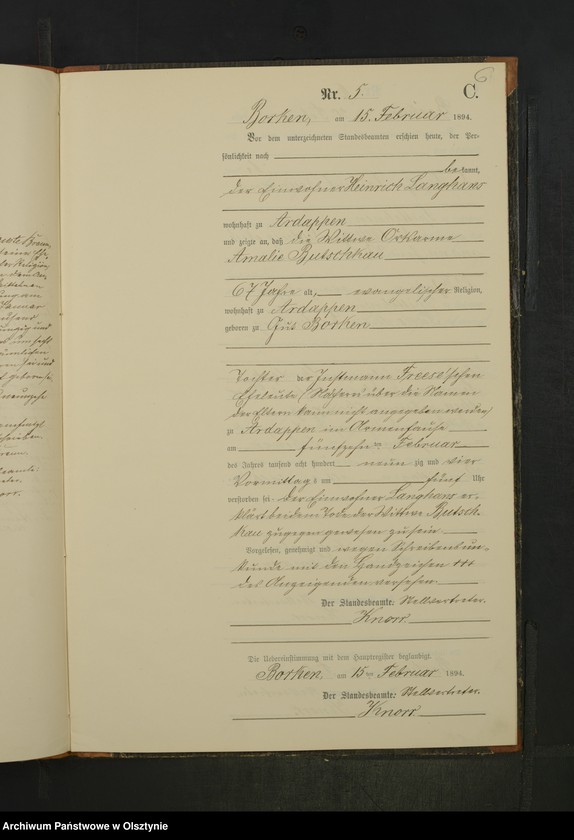 6
Nr. 5.
C.
Borken, am 15. Februar 1894.
Vor dem unterzeichneten Standesbeamten erschien heute, der Per-
sönlichkeit nach
bekannt,
der Einwohner Heinrich Langhans
wohnhaft zu Ardappen
und zeigte an, daß die Wittwe
Amalie Butschkau
67 Jahre alt, evangelischer Religion,
wohnhaft zu Ardappen
geboren zu Gut Borken
Tochter der Instmann Freese'schen
Eheleute (Näheres über die Namen
der Eltern kann nicht angegeben werden)
zu Ardappen im Armenhause
am fünfzehnten Februar
des Jahres tausend acht hundert neunzig und vier
Vormittags um fünf Uhr
verstorben sei. Der Einwohner Langhans er-
klärt bei dem Tode der Wittwe Butsch-
kau zugegen gewesen zu sein.
Vorgelesen, genehmigt und wegen Schreibensun-
kunde mit den Handzeichen +++
des Anzeigenden versehen.
Der Standesbeamte: Stellvertreter.
Knorr
Die Uebereinstimmung mit dem Hauptregister beglaubigt.
Borken, am 15ten Februar 1894.
Der Standesbeamte: Stellvertreter.
Knorr
Archiwum Państwowe w Olsztynie